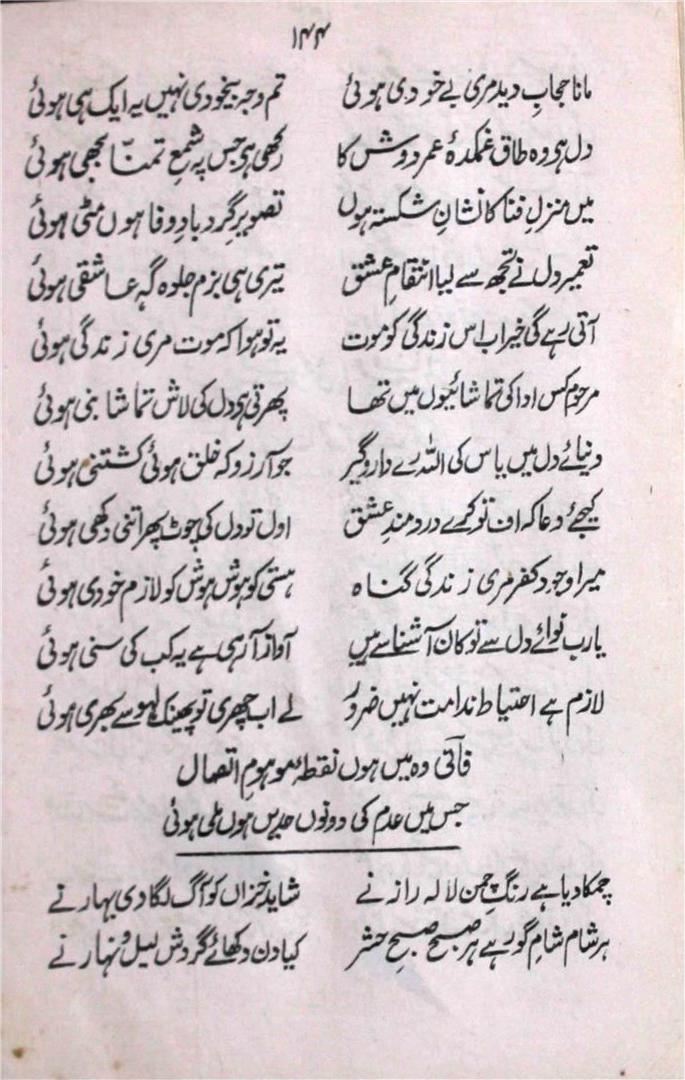 ۱۴۴
مانا حجابِ دید مری بے خودی ہوئی تم وجہِ بیخودی نہیں یہ ایک ہی ہوئی
دل ہی وہ طاق غمکدۂ عمر دوش کا رکھی ہی جس پہ شمعِ تمنّا بجھی ہوئی
میں منزلِ فنا کا نشانِ شکستہ ہوں تصویرِ گردبادِ وفا ہوں مٹی ہوئی
تعمیرِ دل نے تجھ سے لیا انتقامِ عشق تیری ہی بزم جلوہ گہِ عاشقی ہوئی
آتی رہے گی خیر اب اس زندگی کو موت یہ تو ہوا کہ موت مری زندگی ہوئی
مرحوم کس ادا کی تماشائیوں میں تھا پھرتی ہی دل کی لاش تماشا بنی ہوئی
دنیائے دل میں یاس کی اللہ رے دار و گیر جو آرزو کہ خلق ہوئی کشتنی ہوئی
کیجئے دعا کہ اف تو کرے درد مندِ عشق اول تو دل کی چوٹ پھر اتنی دکھی ہوئی
میرا وجود کفر مری زندگی گناہ ہستی کو ہوش ہوش کو لازم خودی ہوئی
یارب نوائے دل سے تو کان آشنا سے ہیں آواز آ رہی ہے یہ کب کی سنی ہوئی
لازم ہے احتیاط ندامت نہیں ضرور لے اب چھری تو پھینک لہو سے بھری ہوئی
فانی وہ میں ہوں نقطۂ موہومِ اتصال
جس میں عدم کی دونوں حدیں ہوں ملی ہوئی
چمکا دیا ہے رنگِ چمن لالہ زار نے شاید خزاں کو آگ لگا دی بہار نے
ہر شام شامِ گور ہے ہر صبح صبحِ حشر کیا دن دکھائے گردشِ لیل و نہار نے